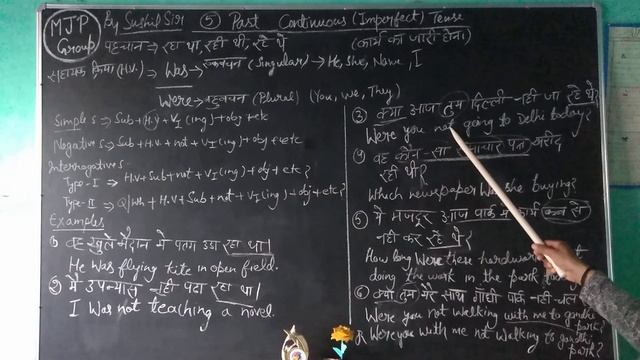 MJP Group
By Sushil Sir ⑤ Past Continuous (Imperfect) Tense
पहचान ⇒ रहा था, रही थी, रहे थे (कार्य का जारी होना)
सहायक क्रिया (H.V.) ⇒ Was → एकवचन (Singular) → He, She, Name, I
Were → बहुवचन (Plural) (You, We, They)
Simple ⇒ Sub + H.V + V₁ (ing) + obj + etc
Negative ⇒ Sub + H.V + not + V₁ (ing) + obj + etc
Interrogative:
Type-I ⇒ H.V + Sub + not + V₁ (ing) + obj + etc?
Type-II ⇒ Q/Wh + H.V + Sub + not + V₁ (ing) + obj + etc?
Examples
① वह खुले मैदान में पतंग उड़ा रहा था।
He was flying kite in open field.
② मैं उपन्यास नहीं पढ़ा रहा था।
I was not teaching a novel.
③ क्या आज तुम दिल्ली नहीं जा रहे थे?
Were you not going to Delhi today?
④ वह कौन सा समाचार पत्र खरीद
रही थी?
Which newspaper was she buying?
⑤ ये मजदूर आज पार्क में कार्य कब से
नहीं कर रहे थे?
How long were these hard
doing the work in the park
⑥ क्या तुम मेरे साथ गाँधी पार्क नहीं चल
Were you not walking with me to gandhi
park?
Were you with me not walking to gandhi
park?